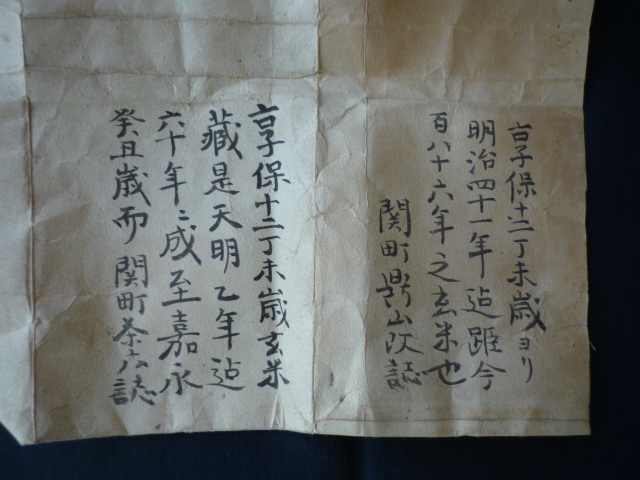 享保十二丁未歳ヨリ
明治四十一年迠距今
百八十六年之玄米也
関町 山次誌
享保十二丁未歳玄米
藏是天明乙年迠
六十年ニ成至嘉永
癸丑歳而 関町茶六誌